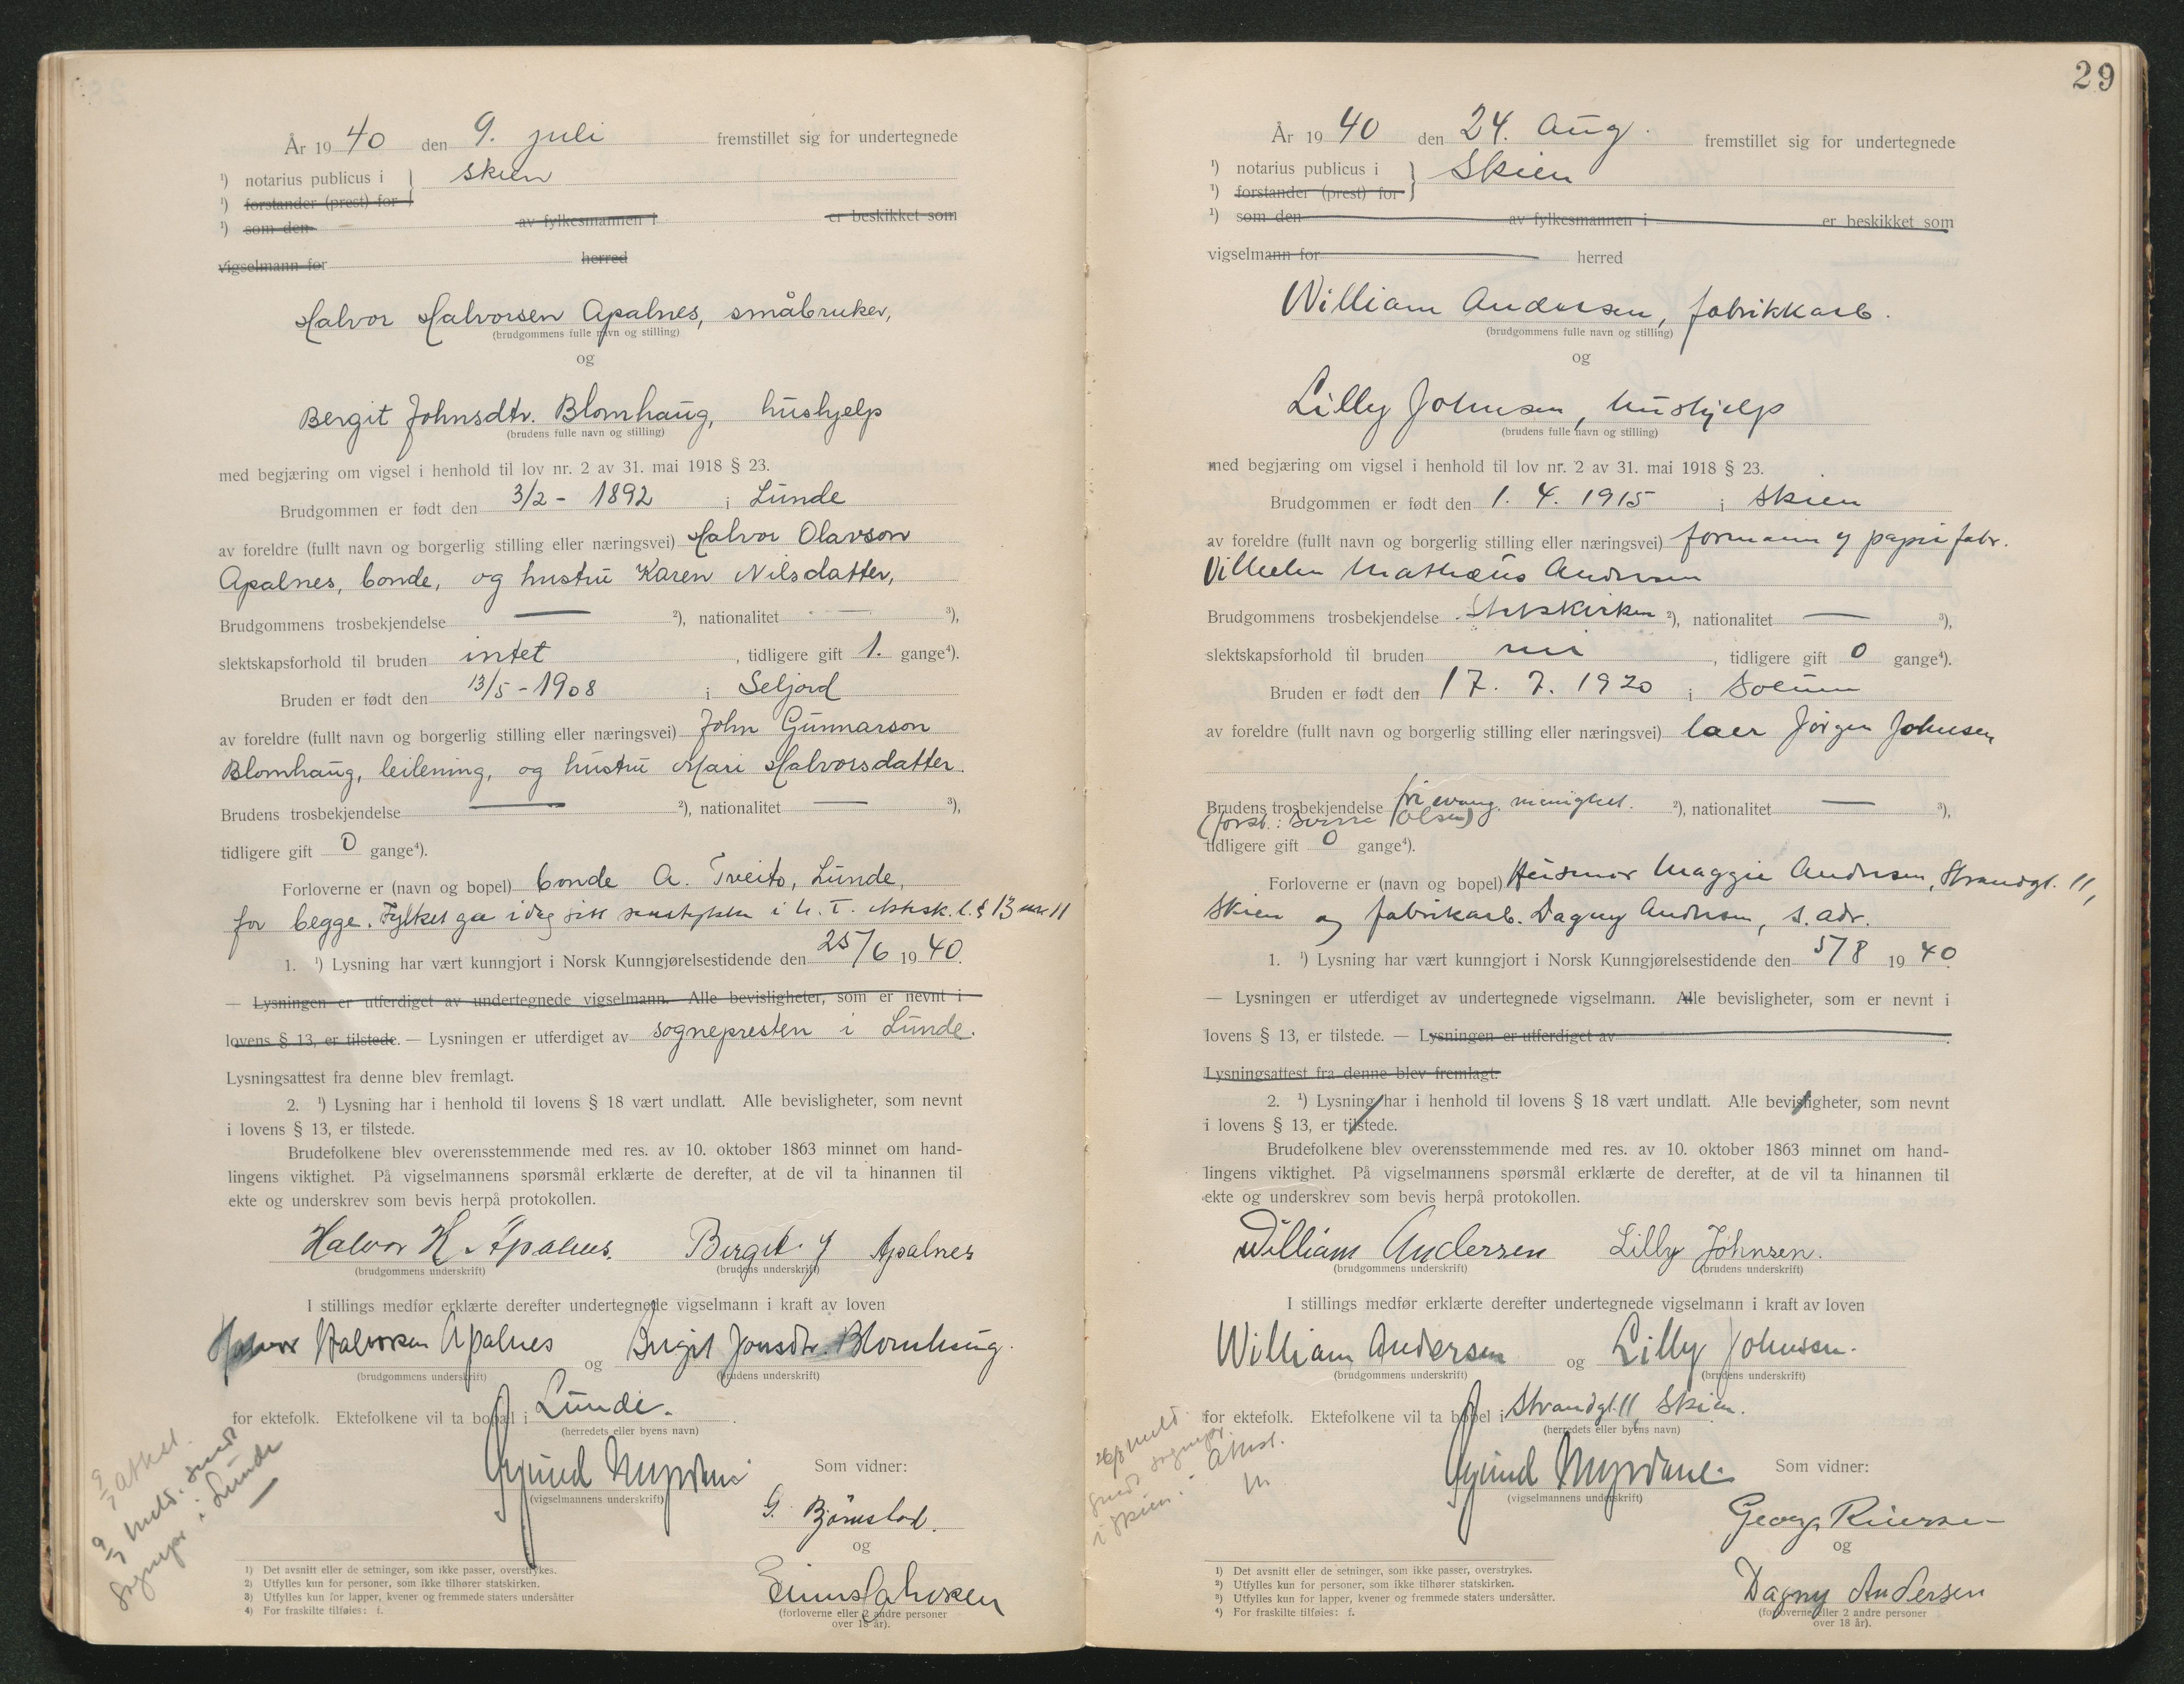 År 19 40 den 9. juli fremstillet sig for undertegnede
¹) notarius publicus i } Skien
¹) forstander (prest) for
¹) som den av fylkesmannen i er beskikket som
vigselmann for herred
Halvor Halvorsen Apalnes, småbruker,
(brudgommens fulle navn og stilling)
og
Bergit Johnsdtr. Blomhaug, hushjelp
(brudens fulle navn og stilling)
med begjæring om vigsel i henhold til lov nr. 2 av 31. mai 1918 § 23.
Brudgommen er født den 3/2 - 1892 i Lunde
av foreldre (fullt navn og borgerlig stilling eller næringsvei) Halvor Olavson
Apalnes, bonde, og hustru Karen Nilsdatter,
Brudgommens trosbekjendelse — ²), nationalitet — ³),
slektskapsforhold til bruden intet , tidligere gift 1. gange⁴).
Bruden er født den 13/5 - 1908 i Seljord
av foreldre (fullt navn og borgerlig stilling eller næringsvei) John Gunnarson
Blomhaug, leilening, og hustru Mari Halvorsdatter.
Brudens trosbekjendelse — ²), nationalitet — ³),
tidligere gift 0 gange⁴).
Forloverne er (navn og bopel) bonde A. Tveito, Lunde,
for begge. Fylket ga idag sitt i h. t. l. § 13 nr 11
1. ¹) Lysning har vært kunngjort i Norsk Kunngjørelsestidende den 25/6 19 40.
— Lysningen er utferdiget av undertegnede vigselmann. Alle bevisligheter, som er nevnt i
lovens § 13, er tilstede. — Lysningen er utferdiget av sognepresten i Lunde.
Lysningsattest fra denne blev fremlagt.
2. ¹) Lysning har i henhold til lovens § 18 vært undlatt. Alle bevisligheter, som nevnt
i lovens § 13, er tilstede.
Brudefolkene blev overensstemmende med res. av 10. oktober 1863 minnet om hand-
lingens viktighet. På vigselmannens spørsmål erklærte de derefter, at de vil ta hinannen til
ekte og underskrev som bevis herpå protokollen.
Halvor H. Apalnes. Bergit J Apalnes
(brudgommens underskrift) (brudens underskrift)
I stillings medfør erklærte derefter undertegnede vigselmann i kraft av loven
Halvor Halvorsen Apalnes og Birgit Jonsdtr. Blomhaug.
(brudgommens underskrift) (brudens underskrift)
for ektefolk. Ektefolkene vil ta bopel i Lunde.
(herredets eller byens navn)
9/7 attest.
9/7 meld. sendt
sognepr. i Lunde
Øyvind Myrdane
(vigselmannens underskrift)
Som vidner:
G. Bjørnstad.
og
(forloverne eller 2 andre personer
over 18 år).
1) Det avsnitt eller de setninger, som ikke passer, overstrykes.
2) Utfylles kun for personer, som ikke tilhører statskirken.
3) Utfylles kun for lapper, kvener og fremmede staters undersåtter
4) For fraskilte tilføies: f.
29
År 19 40 den 24. Aug. fremstillet sig for undertegnede
¹) notarius publicus i } Skien
¹) forstander (prest) for
¹) som den av fylkesmannen i er beskikket som
vigselmann for herred
William Andersen, fabrikkarb.
(brudgommens fulle navn og stilling)
og
Lilly Johnsen, hushjelp
(brudens fulle navn og stilling)
med begjæring om vigsel i henhold til lov nr. 2 av 31. mai 1918 § 23.
Brudgommen er født den 1. 4. 1915 i Skien
av foreldre (fullt navn og borgerlig stilling eller næringsvei) formann v papirfabr.
Vilhelm Mathæus Andersen
Brudgommens trosbekjendelse Statskirken ²), nationalitet — ³),
slektskapsforhold til bruden nei , tidligere gift 0 gange⁴).
Bruden er født den 17. 7. 1920 i Solum
av foreldre (fullt navn og borgerlig stilling eller næringsvei) laer Jørgen Johnsen
Brudens trosbekjendelse fri evang. menighet. ²), nationalitet — ³),
(forst.: Sverre Olsen)
tidligere gift 0 gange⁴).
Forloverne er (navn og bopel) Husmor Maggie Andersen, Strandgt. 11,
Skien og fabrikarb. Dagny Andersen, s. adr.
1. ¹) Lysning har vært kunngjort i Norsk Kunngjørelsestidende den 5/8 19 40.
— Lysningen er utferdiget av undertegnede vigselmann. Alle bevisligheter, som er nevnt i
lovens § 13, er tilstede. — Lysningen er utferdiget av
Lysningsattest fra denne blev fremlagt.
2. ¹) Lysning har i henhold til lovens § 18 vært undlatt. Alle bevisligheter, som nevnt
i lovens § 13, er tilstede.
Brudefolkene blev overensstemmende med res. av 10. oktober 1863 minnet om hand-
lingens viktighet. På vigselmannens spørsmål erklærte de derefter, at de vil ta hinannen til
ekte og underskrev som bevis herpå protokollen.
William Andersen Lilly Johnsen.
(brudgommens underskrift) (brudens underskrift)
I stillings medfør erklærte derefter undertegnede vigselmann i kraft av loven
William Andersen og Lilly Johnsen.
(brudgommens underskrift) (brudens underskrift)
for ektefolk. Ektefolkene vil ta bopel i Strandgt. 11, Skien.
(herredets eller byens navn)
26/8 meld.
sendt sognepr.
i Skien. - Attest.
Øyvind Myrdane
(vigselmannens underskrift)
Som vidner:
Georg
og
Dagny Andersen
(forloverne eller 2 andre personer
over 18 år).
¹) Det avsnitt eller de setninger, som ikke passer, overstrykes.
²) Utfylles kun for personer, som ikke tilhører statskirken.
³) Utfylles kun for lapper, kvener og fremmede staters undersåtter.
⁴) For fraskilte tilføies: f.